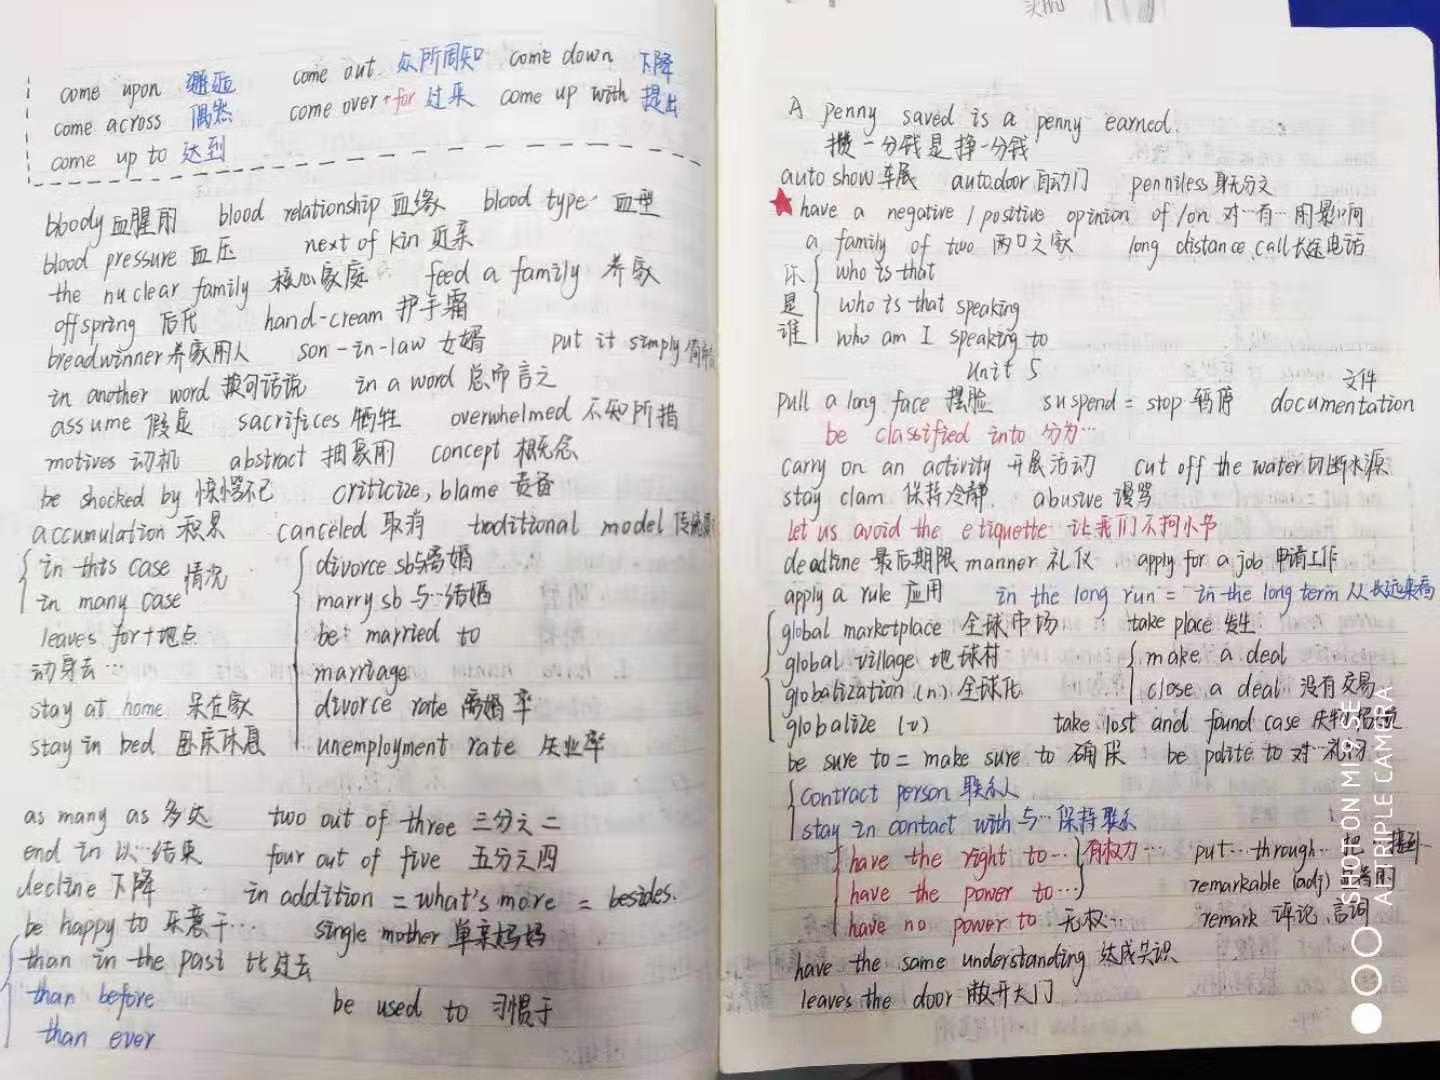 come upon 邂逅 come out 众所周知 come down 下降
come across 偶然 come over+for 过来 come up with 提出
come up to 达到
bloody 血腥的 blood relationship 血缘 blood type 血型
blood pressure 血压 next of kin 近亲
the nuclear family 核心家庭 feed a family 养家
offspring 后代 hand-cream 护手霜
breadwinner 养家的人 son-in-law 女婿 put it simply
in another word 换句话说 in a word 总而言之
assume 假定 sacrifices 牺牲 overwhelmed 不知所措
motives 动机 abstract 抽象的 concept 概念
be shocked by 惊愕不已 criticize, blame 责备
accumulation 积累 canceled 取消 traditional model
in this case 情况 divorce sb与离婚
in many case marry sb 与…结婚
leaves for+地点 be married to
动身去… marriage
stay at home 呆在家 divorce rate 离婚率
stay in bed 卧床休息 unemployment rate 失业率
as many as 多达 two out of three 三分之二
end in 以…结束 four out of five 五分之四
decline 下降 in addition = what's more = besides.
be happy to 乐意于… single mother 单亲妈妈
than in the past 比过去
than before be used to 习惯于
than ever
A penny saved is a penny earned.
攒一分钱是挣一分钱
auto show 车展 auto.door 自动门 penniless 身无分文
have a negative / positive opinion of /on 对…有…的影响
a family of two 两口之家 long distance call 长途电话
你是谁 who is that
who is that speaking
who am I speaking to
Unit 5
pull a long face 摆脸 suspend = stop 暂停 documentation 文件
be classified into 分为…
carry on an activity 开展活动 cut off the water 切断水源
stay clam 保持冷静. abusive 谩骂
let us avoid the etiquette 让我们不拘小节
deadline 最后期限 manner 礼仪 apply for a job 申请工作
apply a rule 应用 in the long run = in the long term 从长远来看
global marketplace 全球市场 take place 发生
global village 地球村 make a deal
globalization (n) 全球化 close a deal 没有交易
globalize (v) take lost and found case
be sure to = make sure to 确保 be polite to 对…礼貌
contract person 联系人
stay in contact with 与…保持联系
have the right to… 有权力… put…through…
have the power to… remarkable (adj)
have no power to 无权… remark 评论, 言词
have the same understanding 达成共识
leaves the door 敞开大门
SHOT ON MI 9 SE
AI TRIPLE CAMERA